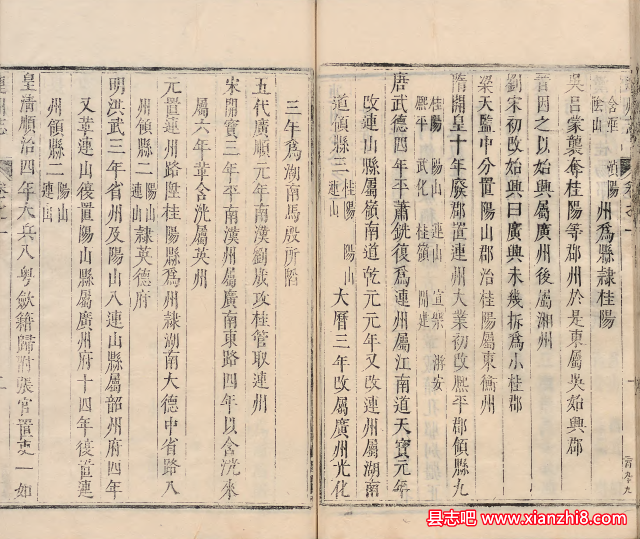 含洭 湞陽
陰山 州爲縣隸桂陽
吳呂蒙襲奪桂陽等郡州於是東屬吳始興郡
晉因之以始興屬廣州後屬湘州
劉宋初改始興曰廣興未幾拆爲小桂郡
梁天監中分置陽山郡治桂陽屬東衡州
隋開皇十年廢郡置連州大業初改熙平郡領縣九
桂陽 陽山 連山 宣樂 游安
熙平 武化 桂嶺 開建
唐武德四年平蕭銑復爲連州屬江南道天寶元年
改連山郡屬嶺南道乾元元年又改連州屬湖南
道領縣三 桂陽 陽山
連山 大曆三年改屬廣州光化
三年爲湖南馬殷所陷
五代廣順元年南漢劉晟攻桂管取連州
宋開寶三年平南漢州屬廣南東路四年以含洸來
屬六年葦含洸屬英州
元置連州路陞桂陽縣爲州隸湖南大德中省路入
州領縣二 陽山
連山 隸英德府
明洪武三年省州及陽山入連山縣屬韶州府四年
又葦連山復置陽山縣屬廣州府十四年復置連
州領縣二 陽山
連山
皇清順治四年大兵入粵歛籍歸附張官置吏一如
連州志 卷之一
县志吧 www.xianzhi8.com